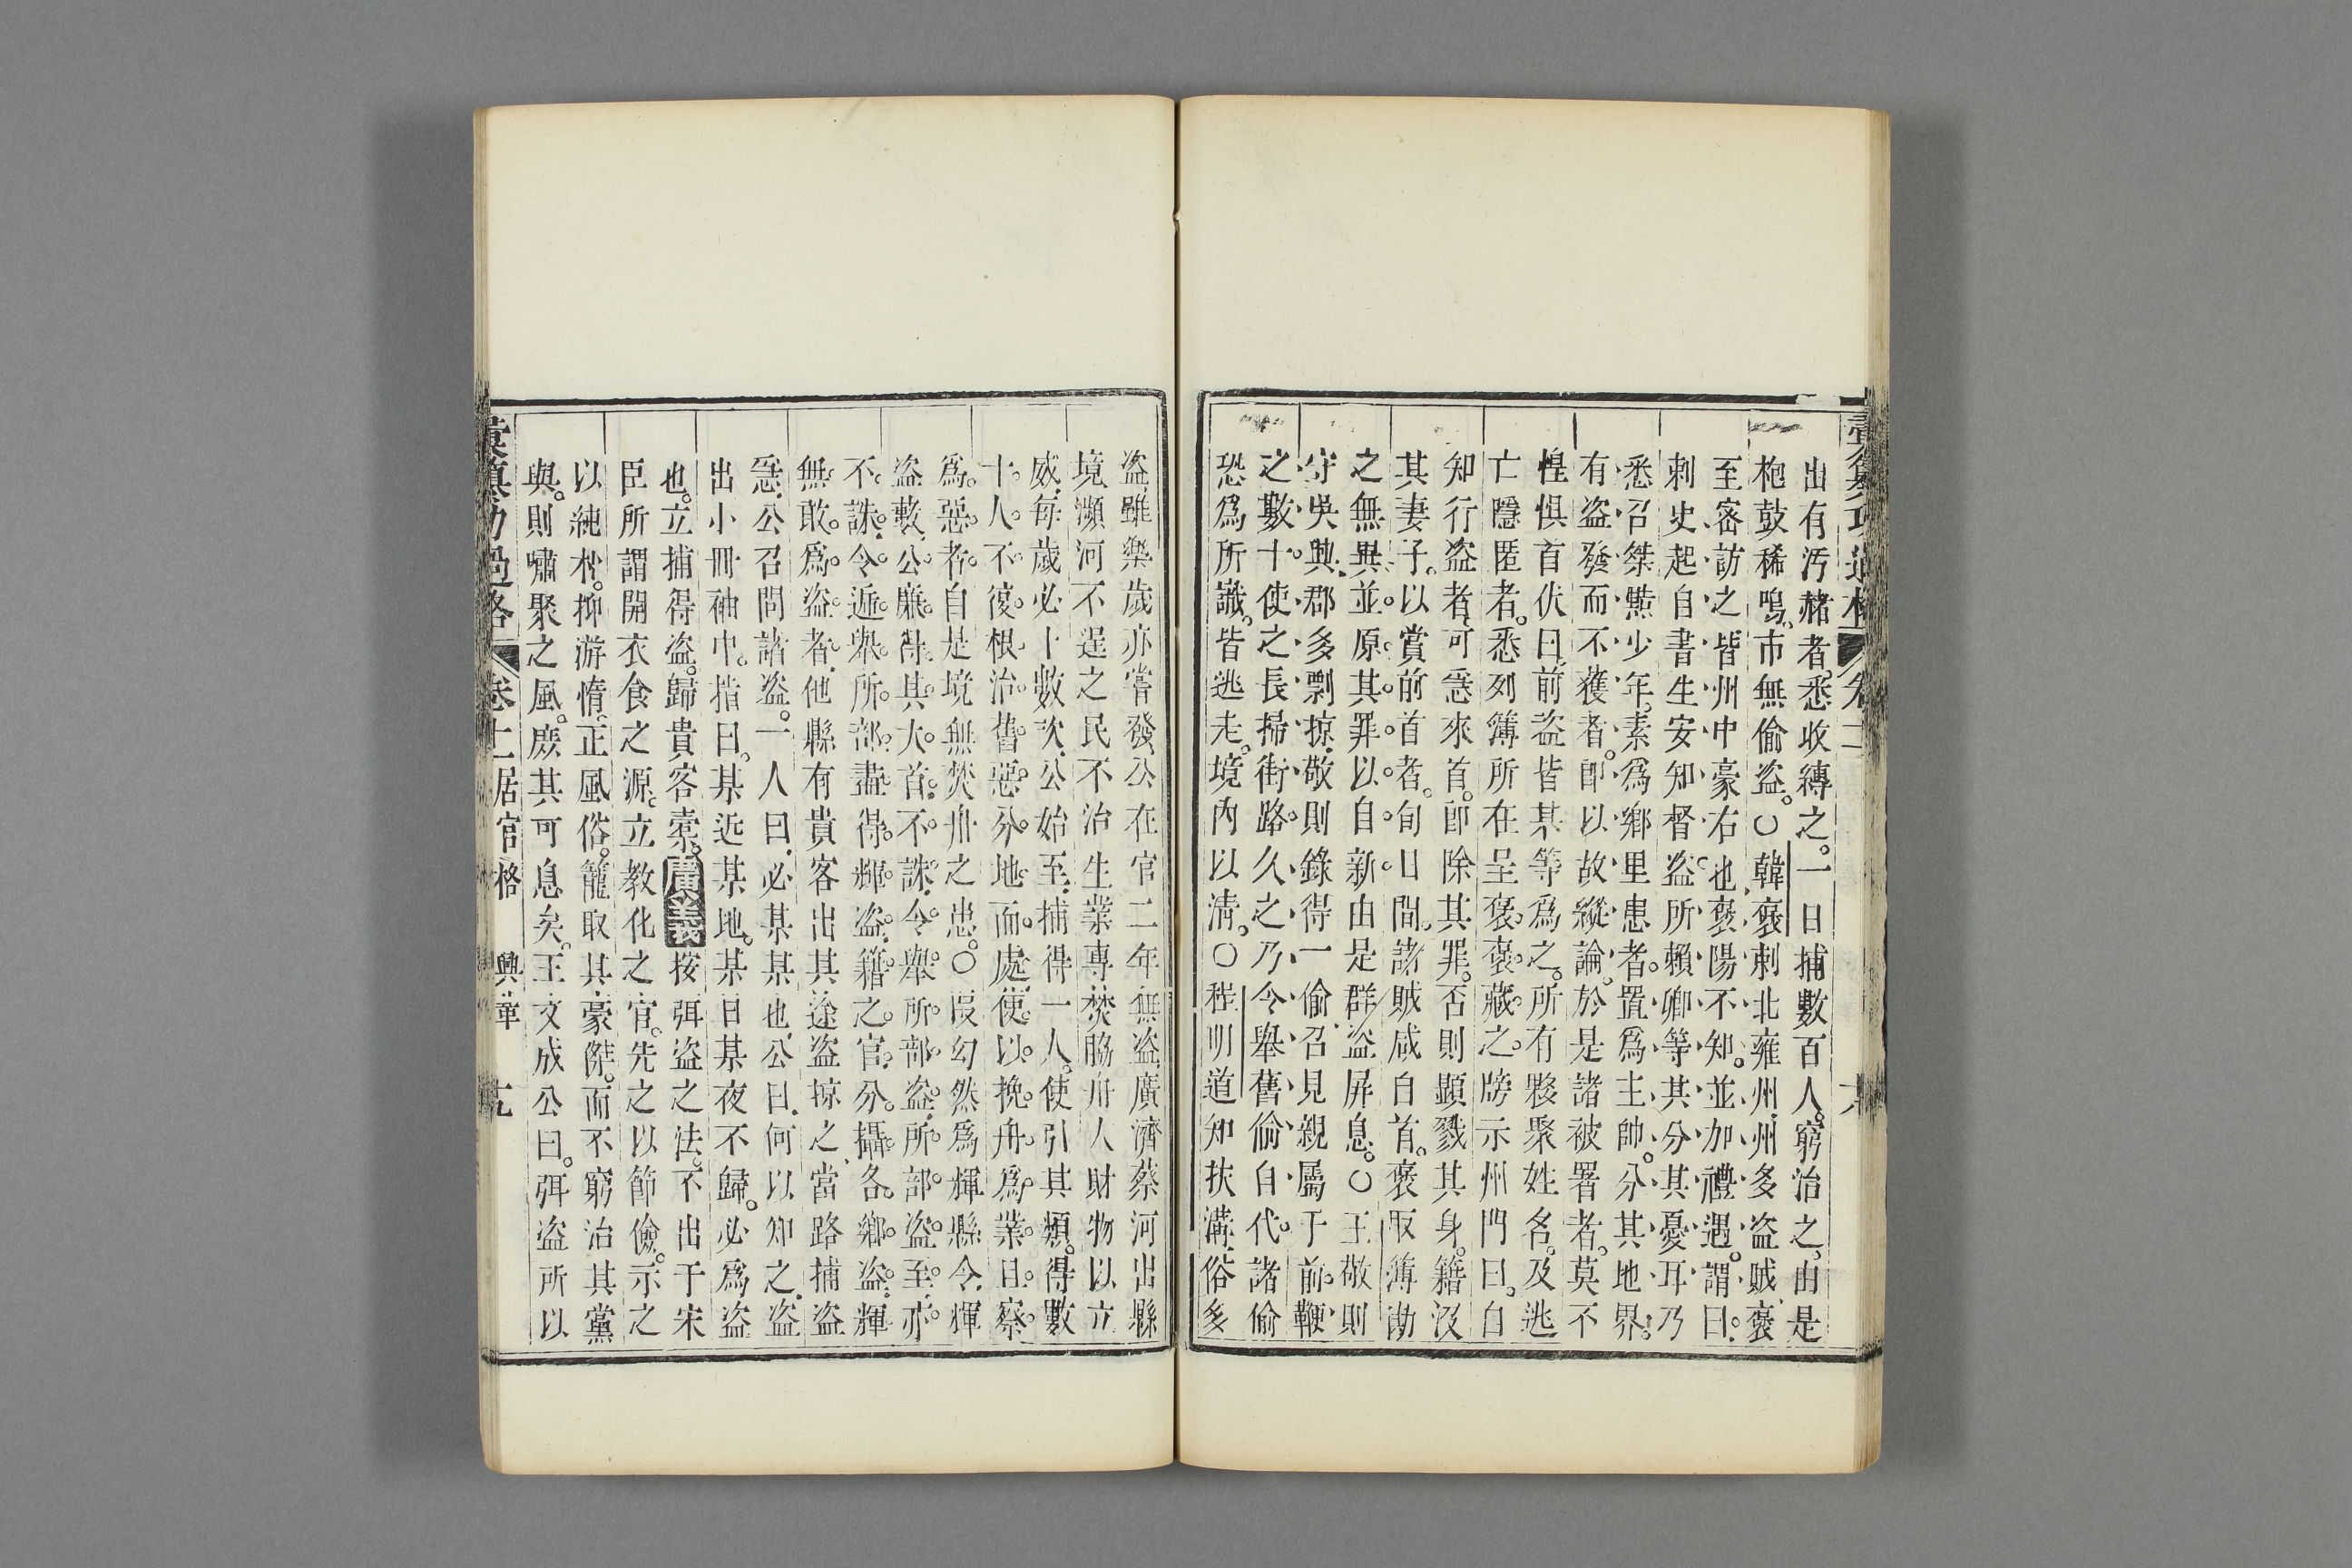 出有汚赭者悉收縛之。一日捕數百人。窮治之。由是
枹鼓稀鳴。市無偷盜。○韓褒刺北雍州。州多盜賊。褒
至密訪之皆州中豪右也。褒陽不知。並加禮遇。謂曰。
刺史起自書生安知督盜。所賴卿等共分其憂耳乃
悉召桀黠少年。素爲鄉里患者。置爲主帥。分其地界。
有盜發而不獲者。卽以故縱論。於是諸被署者。莫不
惶惧首伏曰。前盜皆某等爲之。所有夥聚姓名。及逃
亡隱匿者。悉列簿所在呈褒。褒藏之。牓示州門曰。自
知行盜者。可急來首。卽除其罪。否則顯戮其身。籍沒
其妻子。以賞前首者。旬日間。諸賊咸自首。褒取簿勘
之無異。並原其罪。以自新。由是群盜屏息。○王敬則
守吳興。郡多剽掠。敬則錄得一偷。召見親屬于前。鞭
之數十。使之長掃街路。久之乃令舉舊偷自代。諸偷
恐爲所識。皆逃走。境內以淸。○程明道知扶溝。俗多
盜。雖樂歲亦嘗發。公在官二年無盜。廣濟蔡河出縣
境瀕河不逞之民不治生業專焚脇舟人財物以立
威。每歲必十數次。公始至。捕得一人。使引其類。得數
十人。不復根治舊惡。分地而處。使以挽舟爲業。且察
爲惡者。自是境無焚舟之患。○段幻然爲輝縣令。輝
盜藪。公廉得其大首。不誅。令舉所部盜。所部盜至。亦
不誅。令遞舉所部。盡得輝盜。籍之官。分攝各鄉盜。輝
無敢爲盜者。他縣有貴客出其途盜掠之。當路捕盜
急。公召問諸盜。一人曰。必某某也。公曰。何以知之。盜
出小冊袖中。指曰。某近某地。某日某夜不歸。必爲盜
也。立捕得盜。歸貴客橐。廣義按弭盜之法。不出于宋
臣所謂開衣食之源。立教化之官。先之以節儉。示之
以純朴。抑游惰。正風俗。籠取其豪傑。而不窮治其黨
與。則嘯聚之風。庶其可息矣。王文成公曰。弭盜所以
彙纂功過格 卷十二居官格 興革 十九